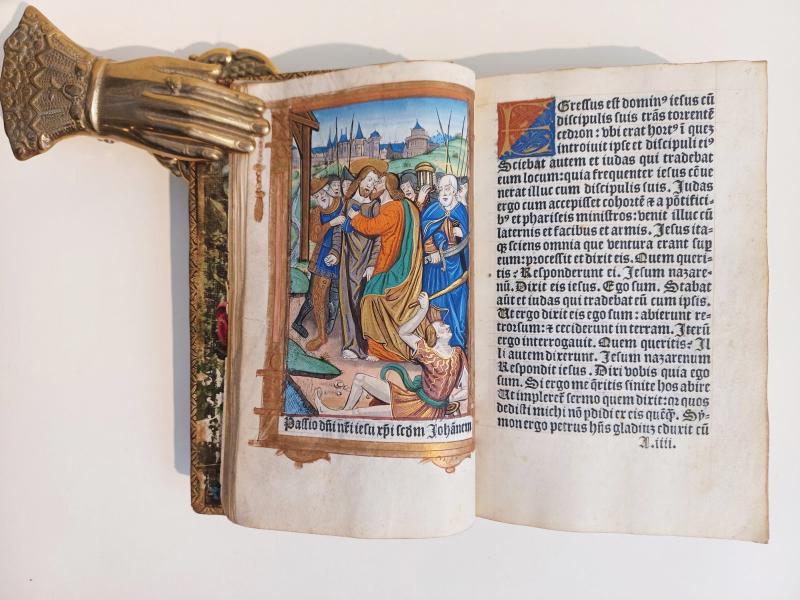 Passio dñi nr̃i iesu xp̃i scd̃m Johãnem
Egressus est dominꝰ iesus cũ
discipulis suis trãs torrentẽ
cedron: vbi erat hortꝰ ĩ quẽ
introiuit ipse et discipuli eiꝰ
Sciebat autem et iudas qui tradebat
eum locum: quia frequenter iesus cõue
nerat illuc cum discipulis suis. Judas
ergo cum accepisset cohortẽ ⁊ a põtificibꝰ
et phariseis ministros: venit illuc cũ
laternis et facibus et armis. Jesus ita-
qꝫ sciens omnia que ventura erant suꝑ
eum: processit et dixit eis. Quem queri-
tis? Responderunt ei. Jesum nazare-
nũ. Dixit eis iesus. Ego sum. Stabat
aũt et iudas qui tradebat eũ cum ipsis.
Ut ergo dixit eis ego sum: abierunt re-
trorsum: ⁊ ceciderunt in terram. Iterũ
ergo interrogauit. Quem queritis? Il
li autem dixerunt. Jesum nazarenum
Respondit iesus. Dixi vobis quia ego
sum. Si ergo me q̃ritis sinite hos abire
Ut impleret̃ sermo quem dixit: qr quos
dedisti michi nõ ꝑdidi ex eis quẽqꝫ. Sy-
mon ergo petrus hñs gladiũ eduxit eũ
A.iiii.